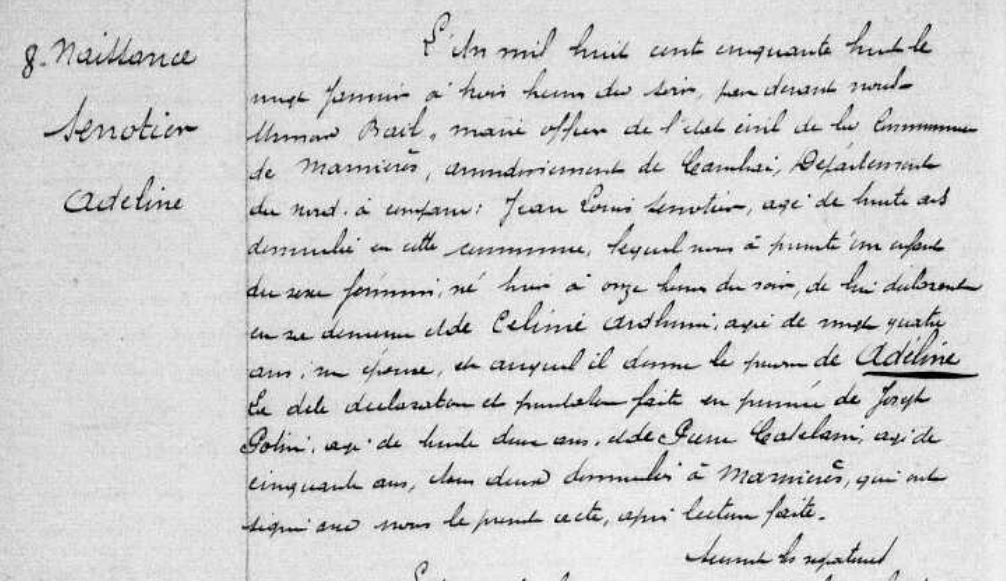 8. Naissance
Lenotier
Adeline
L'An mil huit cent cinquante huit le
vingt Janvier à trois heures du soir, par devant nous
Bail, maire officier de l'état civil de la Commune
de Masnières, arrondissement de Cambrai, Département
du nord. à comparu: Jean Louis Lenotier, agé de trente ans
domicilié en cette commune, lequel nous à présenté un enfant
du sexe féminin, né hier à onze heures du soir, de lui déclarant
en sa demeure et de Celinie agée de vingt quatre
ans, son épouse, et auquel il donne le prénom de Adéline
La dite déclaration et présentation faite en présence de Joseph
agé de trente deux ans, et de Pierre Catelain, agé de
cinquante ans, tous deux domiciliés à Masnières, qui ont
signé avec nous le présent acte, après lecture faite.
Suivent les signatures